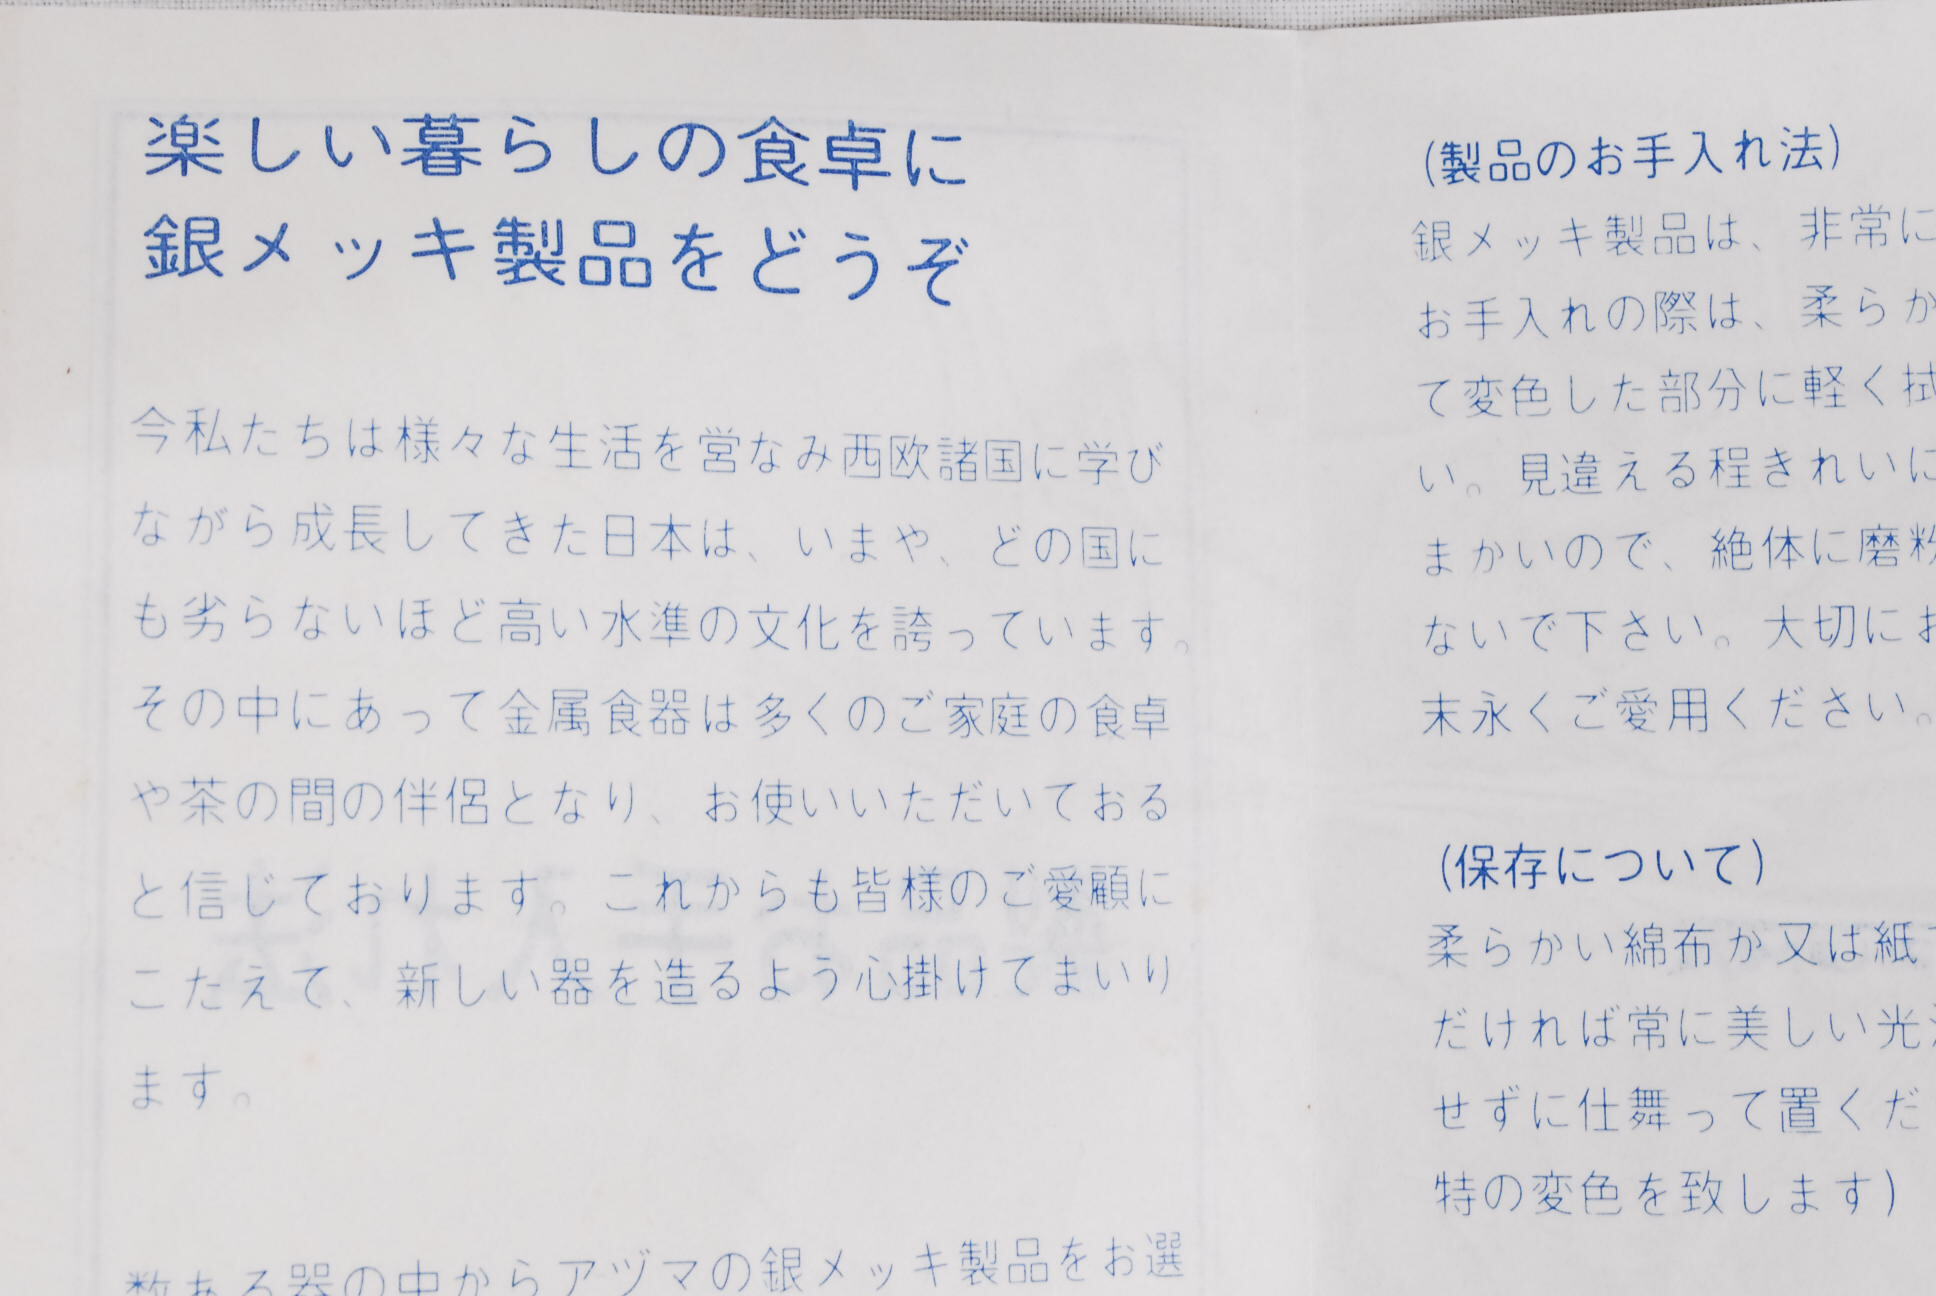 楽しい暮らしの食卓に
銀メッキ製品をどうぞ
今私たちは様々な生活を営なみ西欧諸国に学び
ながら成長してきた日本は、いまや、どの国に
も劣らないほど高い水準の文化を誇っています。
その中にあって金属食器は多くのご家庭の食卓
や茶の間の伴侶となり、お使いいただいておる
と信じております。これからも皆様のご愛顧に
こたえて、新しい器を造るよう心掛けてまいり
ます。
数ある器の中からアヅマの銀メッキ製品をお選
(製品のお手入れ法)
銀メッキ製品は、非常に
お手入れの際は、柔らか
て変色した部分に軽く拭
い。見違える程きれいに
まかいので、絶体に磨粉
ないで下さい。大切にお
末永くご愛用ください。
(保存について)
柔らかい綿布か又は紙で
だければ常に美しい光沢
せずに仕舞って置くだ
特の変色を致します)